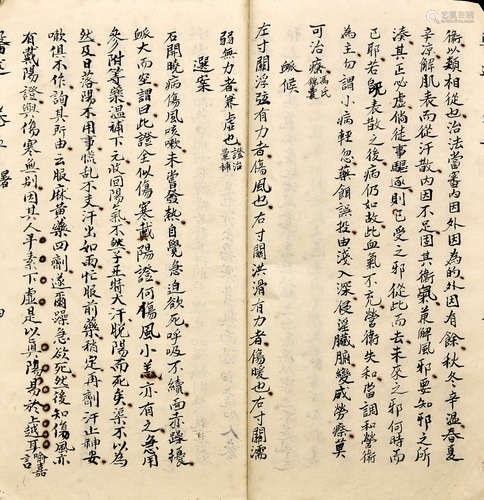 衛以類相從也治法當審內因外因為的外因有餘秋冬辛溫春夏
辛涼解肌表而從汗散內因不足固其衛氣兼解風邪要知邪之所
湊其正必虛倘徒事驅逐則已受之邪從此而去未來之邪何時而
已耶若既表散之後病仍如故此血氣不充營衛失和當調和營衛
為主勿謂小病輕忽藥餌誤投由淺入深侵淫臟腑變成勞瘵莫
可治療馮氏錦囊
脈候
左寸關浮弦有力者傷風也右寸關洪滑有力者傷暖也右寸關濡
弱無力者兼虛也證治彙補
選案
石開曉病傷風咳嗽未嘗發熱自覺急迫欲死呼吸不續面赤躁擾
脈大而空謂曰此證全似傷寒戴陽證何傷風小恙亦有之急用
參附等藥溫補下元收回陽氣不然子丑時大汗脫陽而死矣渠不以為
然及日落陽不用事慌亂不支汗出如雨忙服前藥稍定再劑汗止神安
嗽俱不作詢其所由云服麻黃藥四劑遂爾躁急欲死然後知傷風亦
有戴陽證與傷寒無別因其人平素下虛是以真陽易於上越耳喻嘉言